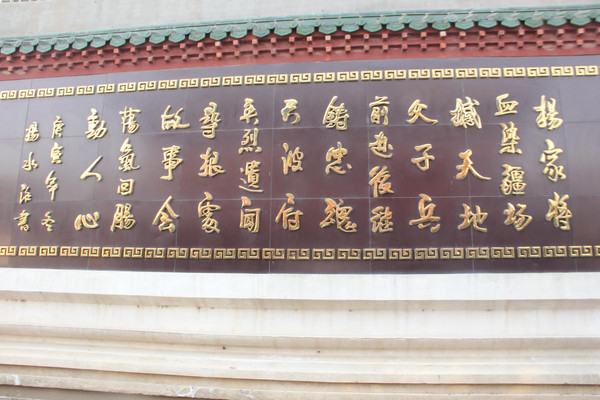 楊家將
血染疆場
撼天地
父子兵
前赴後继
鑄忠魂
天波府
英烈遺聞
尋根處
故事会
蕩氣回腸
動人心
庚寅年冬
楊水書